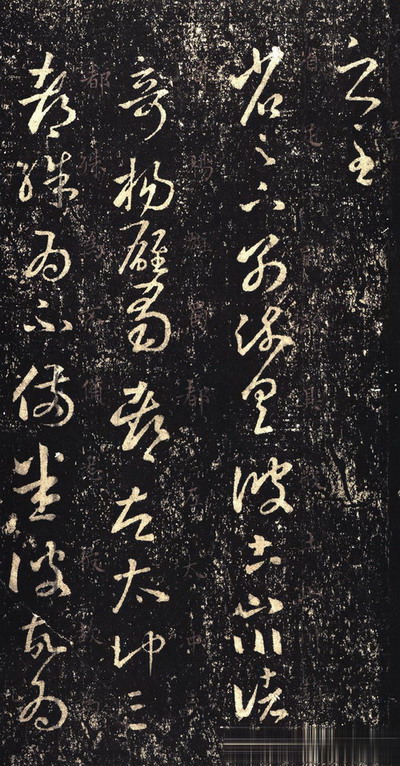 之至
省足下別疏具彼土山川諸
奇楊雄蜀都左太沖三
都殊為不備悉彼故為